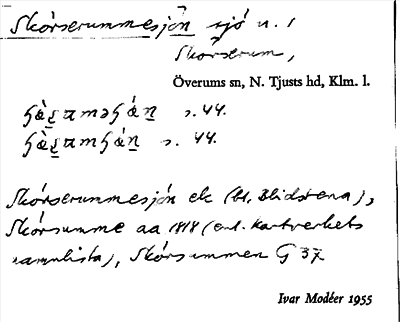 Skórserummesjön sjö n. 1
Skorserum,
Överums sn, N. Tjusts hd, Klm. l.
s. 44.
s. 44.
Skórserummesjón ek (bl. Blidstena),
Skórsumme aa 1818 (enl. Kartverkets
namnlista), Skórsummen G 37
Ivar Modéer 1955